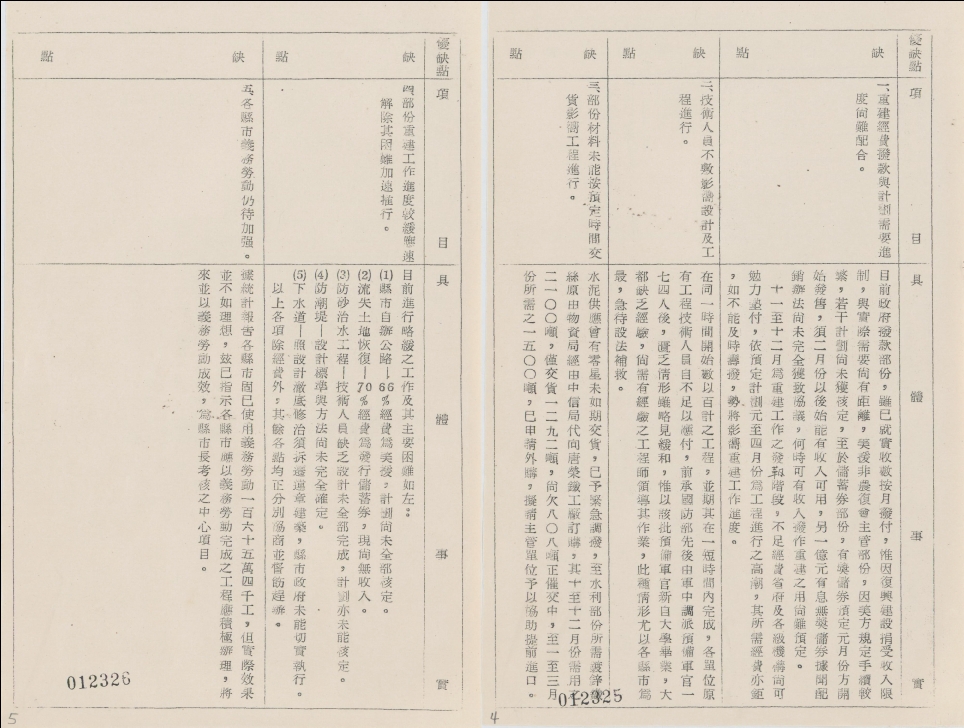 優缺點
項
目
具
體
事
實
缺
點
一、重建經費撥款與計劃需要進
度尚難配合。
目前政府撥款部份，雖已就實收數按月撥付，惟因復興建設捐受收入限
制，與實際需要尚有距離，美援非農復會主管部份，因美方規定手續較
繁，若干計劃尚未獲核定，至於儲蓄券部份，有獎儲券預定元月份方開
始發售，須二月份以後始能有收入可用，另一億元有息無獎儲券據聞配
銷辦法尚未完全獲致協議，何時可有收入撥作重建之用尚難預定。
十一至十二月為重建工作之發軔階段，不足經費省府及各級機構尚可
勉力墊付，依預定計劃元至四月份為工程進行之高潮，其所需經費亦鉅
，如不能及時籌撥，勢將影響重建工作進度。
缺
點
二、技術人員不敷影響設計及工
程進行。
在同一時間開始數以百計之工程，並期其在一短時間內完成，各單位原
有工程技術人員自不足以應付，前承國防部先後由軍中調派預備軍官一
七四人後，匱乏情形雖略見緩和，惟以該批預備軍官新自大學畢業，大
都缺乏經驗，尚需有經驗之工程師領導其作業，此種情形尤以各縣市為
最，急待設法補救。
缺
點
三、部份材料未能按預定時間交
貨影響工程進行。
水泥供應曾有零星未如期交貨，已予緊急調撥，至水利部份所需鍍鋅鐵
絲原由物資局經由中信局代向唐榮鐵工廠訂購，其十至十二月份需用之
二一〇〇噸，僅交貨一二九二噸，尚欠八〇八噸正催交中，至一至三月
份所需之一五〇〇噸，已申請外購，擬請主管單位予以協助提前進口。
012325
4
優缺點
項
目
具
體
事
實
缺
點
四、部份重建工作進度較緩應速
解除其困難加速推行。
目前進行略緩之工作及其主要困難如左：
(1)縣市自辦公路—66%經費為美援，計劃尚未全部核定。
(2)流失土地恢復—70%經費為發行儲蓄券，現尚無收入。
(3)防砂治水工程—技術人員缺乏設計未全部完成，計劃亦未能核定。
(4)防潮堤—設計標準與方法尚未完全確定。
(5)下水道—照設計澈底修治須拆遷違章建築，縣市政府未能切實執行。
以上各項除經費外，其餘各點均正分別協商並督飭趕辦。
缺
點
五、各縣市義務勞動仍待加強。
據統計報告各縣市固已使用義務勞動一百六十五萬四千工，但實際效果
並不如理想，茲已指示各縣市應以義務勞動完成之工程應積極辦理，將
來並以義務勞動成效，為縣市長考核之中心項目。
012326
5